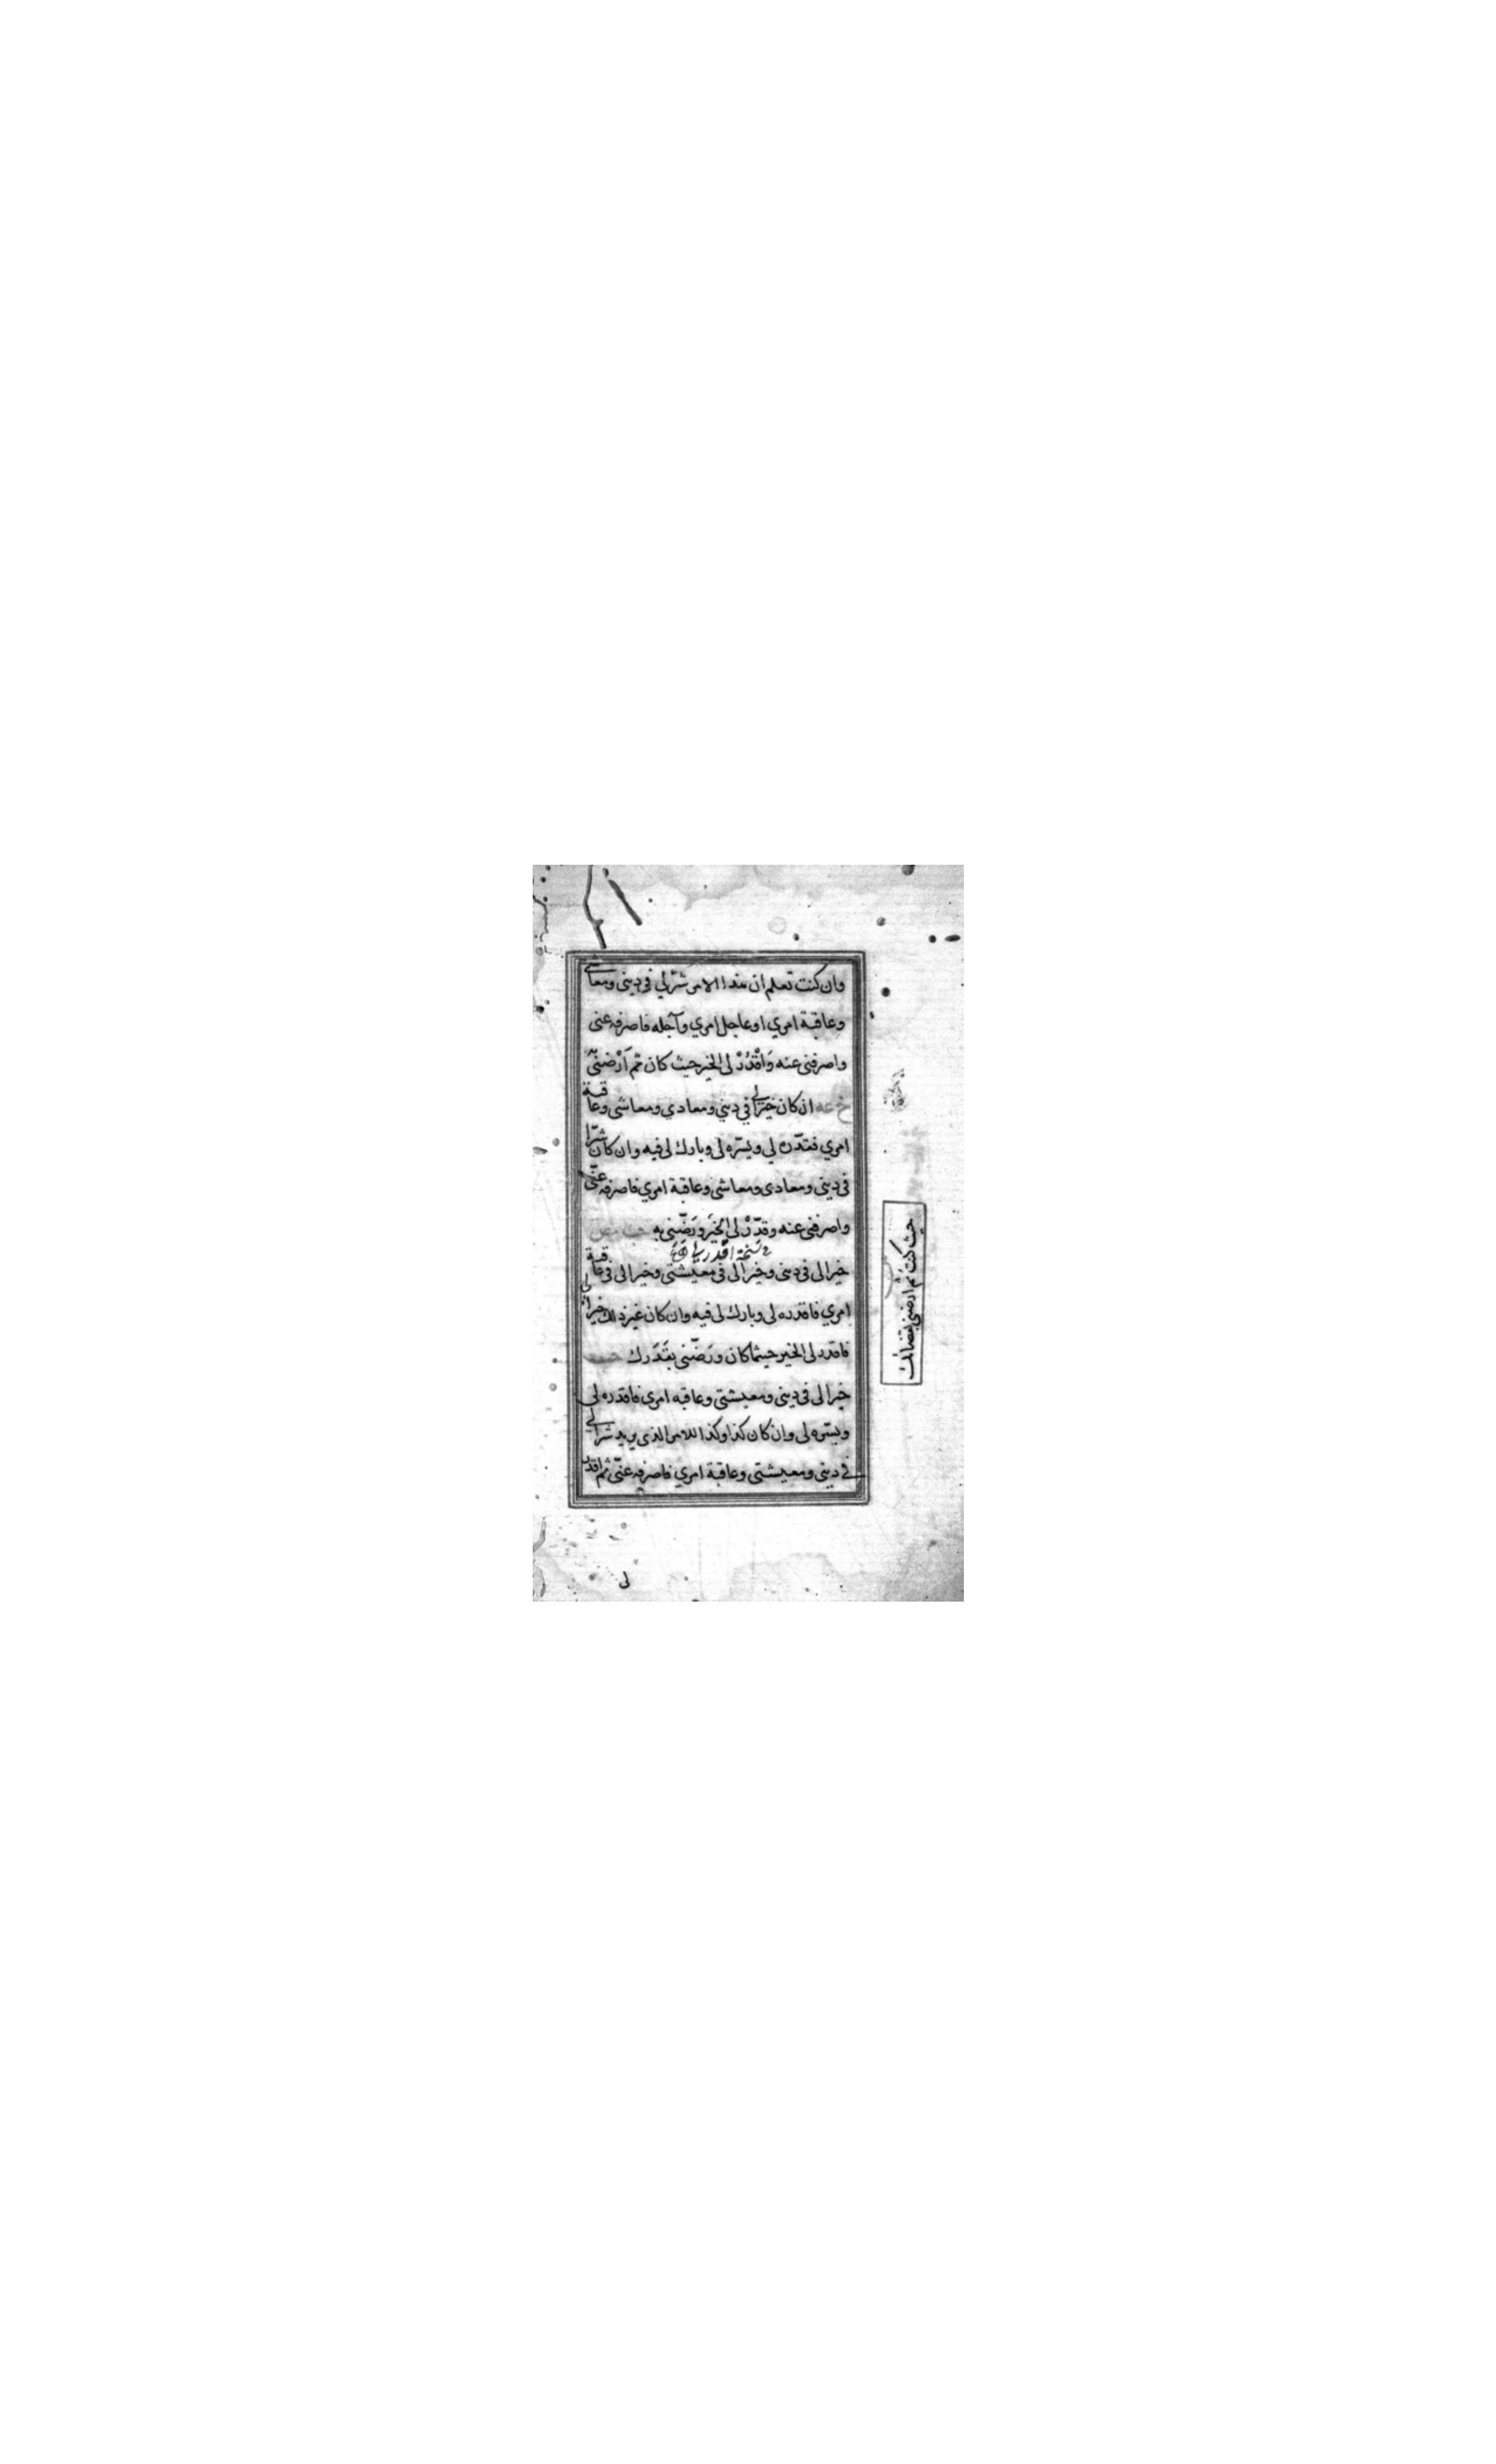 وان كنت تعلم ان هذا الامر شرّ لي في ديني ومعاشي
وعاقبة امري او عاجل امري وآجله فاصرفه عني
واصرفني عنه وَاقْدُرْ لي الخير حيث كان ثم اَرْضني به
ان كان خيرًا لي في ديني ومعادي ومعاشي وعاقبة
امري فقدّره لي ويسّره لي وبارك لي فيه وان كان شرّا
في ديني ومعادي ومعاشي وعاقبة امري فاصرفه عنّي
واصرفني عنه وقدّرْ لي الخيَر ورَضّني به
نسخة اقدر لي
خيرا لي في ديني وخيرا لي في معيشتي وخيرا لي في عاقبة
امري فاقدره لي وبارك لي فيه وان كان غير ذلك خيرا لي
فاقدر لي الخير حيثما كان ورَضّني بقَدَرك
خيرا لي في ديني ومعيشتي وعاقبه امري فاقدره لي
ويسّره لي وان كان كذا وكذا للامر الذي يريد شرا لي
في ديني ومعيشتي وعاقبة امري فاصرفه عنّي ثم اقدر
لي
حيث كنت ثم ارضني بقضائك